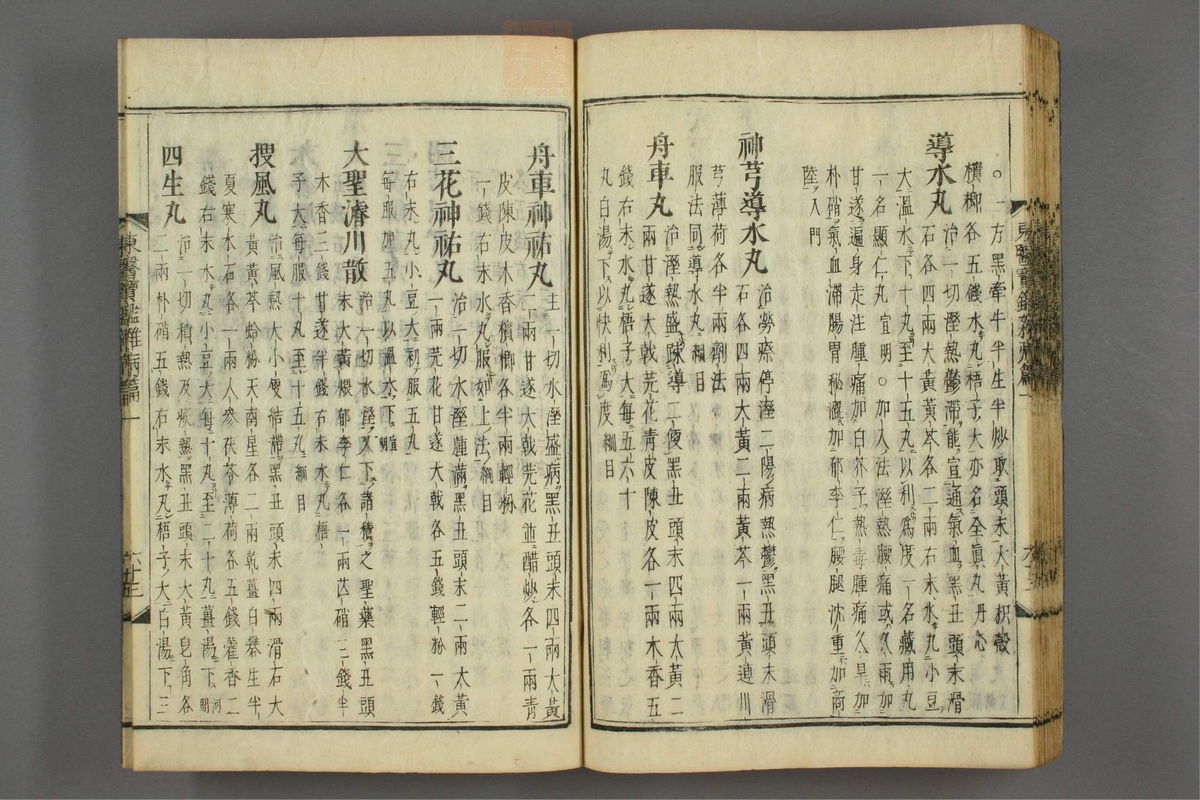 ○一方黑牽牛半生半炒取頭末大黃枳殼
檳榔各五錢水丸梧子大亦名全眞丸丹心
導水丸治一切溼熱鬱滯能宣通氣血黑丑頭末滑
石各四兩大黃黃芩各二兩右末水丸小豆
大溫水下十丸至十五丸以利爲度一名藏用丸
一名顯仁丸宣明○加入法溼熱腰痛或久雨加
甘遂遍身走注腫痛加白芥子熱毒腫痛久旱加
朴硝氣血滯腸胃秘澁加郁李仁腰腿沈重加商
陸入門
神芎導水丸治勞瘵停溼二陽病熱鬱黑丑頭末滑
石各四兩大黃二兩黃芩一兩黃連川
芎薄荷各半兩劑法
服法同導水丸綱目
舟車丸治溼熱盛疎導二便黑丑頭末四兩大黃二
兩甘遂大戟芫花靑皮陳皮各一兩木香五
錢右末水丸梧子大每五六十
丸白湯下以快利爲度綱目
東醫寶鑑雜病篇一
舟車神祐丸主一切水溼盛病黑丑頭末四兩大黃
二兩甘遂大戟芫花並醋炒各一兩靑
皮陳皮木香檳榔各半兩輕粉
一錢右末水丸服如上法綱目
三花神祐丸治一切水溼腫滿黑丑頭末二兩大黃
一兩芫花甘遂大戟各五錢輕粉一錢
右末丸小豆大初服五丸
每服加五丸以溫水下宣明
大聖濬川散治一切水溼久下諸積之聖藥黑丑頭
末大黃煨郁李仁各一兩芒硝三錢半
木香三錢甘遂半錢右末水丸梧
子大每服十丸至十五丸綱目
搜風丸治風熱大小便結滯黑丑頭末四兩滑石大
黃黃芩蛤粉天南星各二兩乾薑白礬生半
夏寒水石各一兩人參茯苓薄荷各五錢藿香二
錢右末水丸小豆大每十丸至二十丸薑湯下河間
四生丸治一切積熱及痰熱黑丑頭末大黃皂角各
二兩朴硝五錢右末水丸梧子大白湯下三
東醫寶鑑雜病篇一